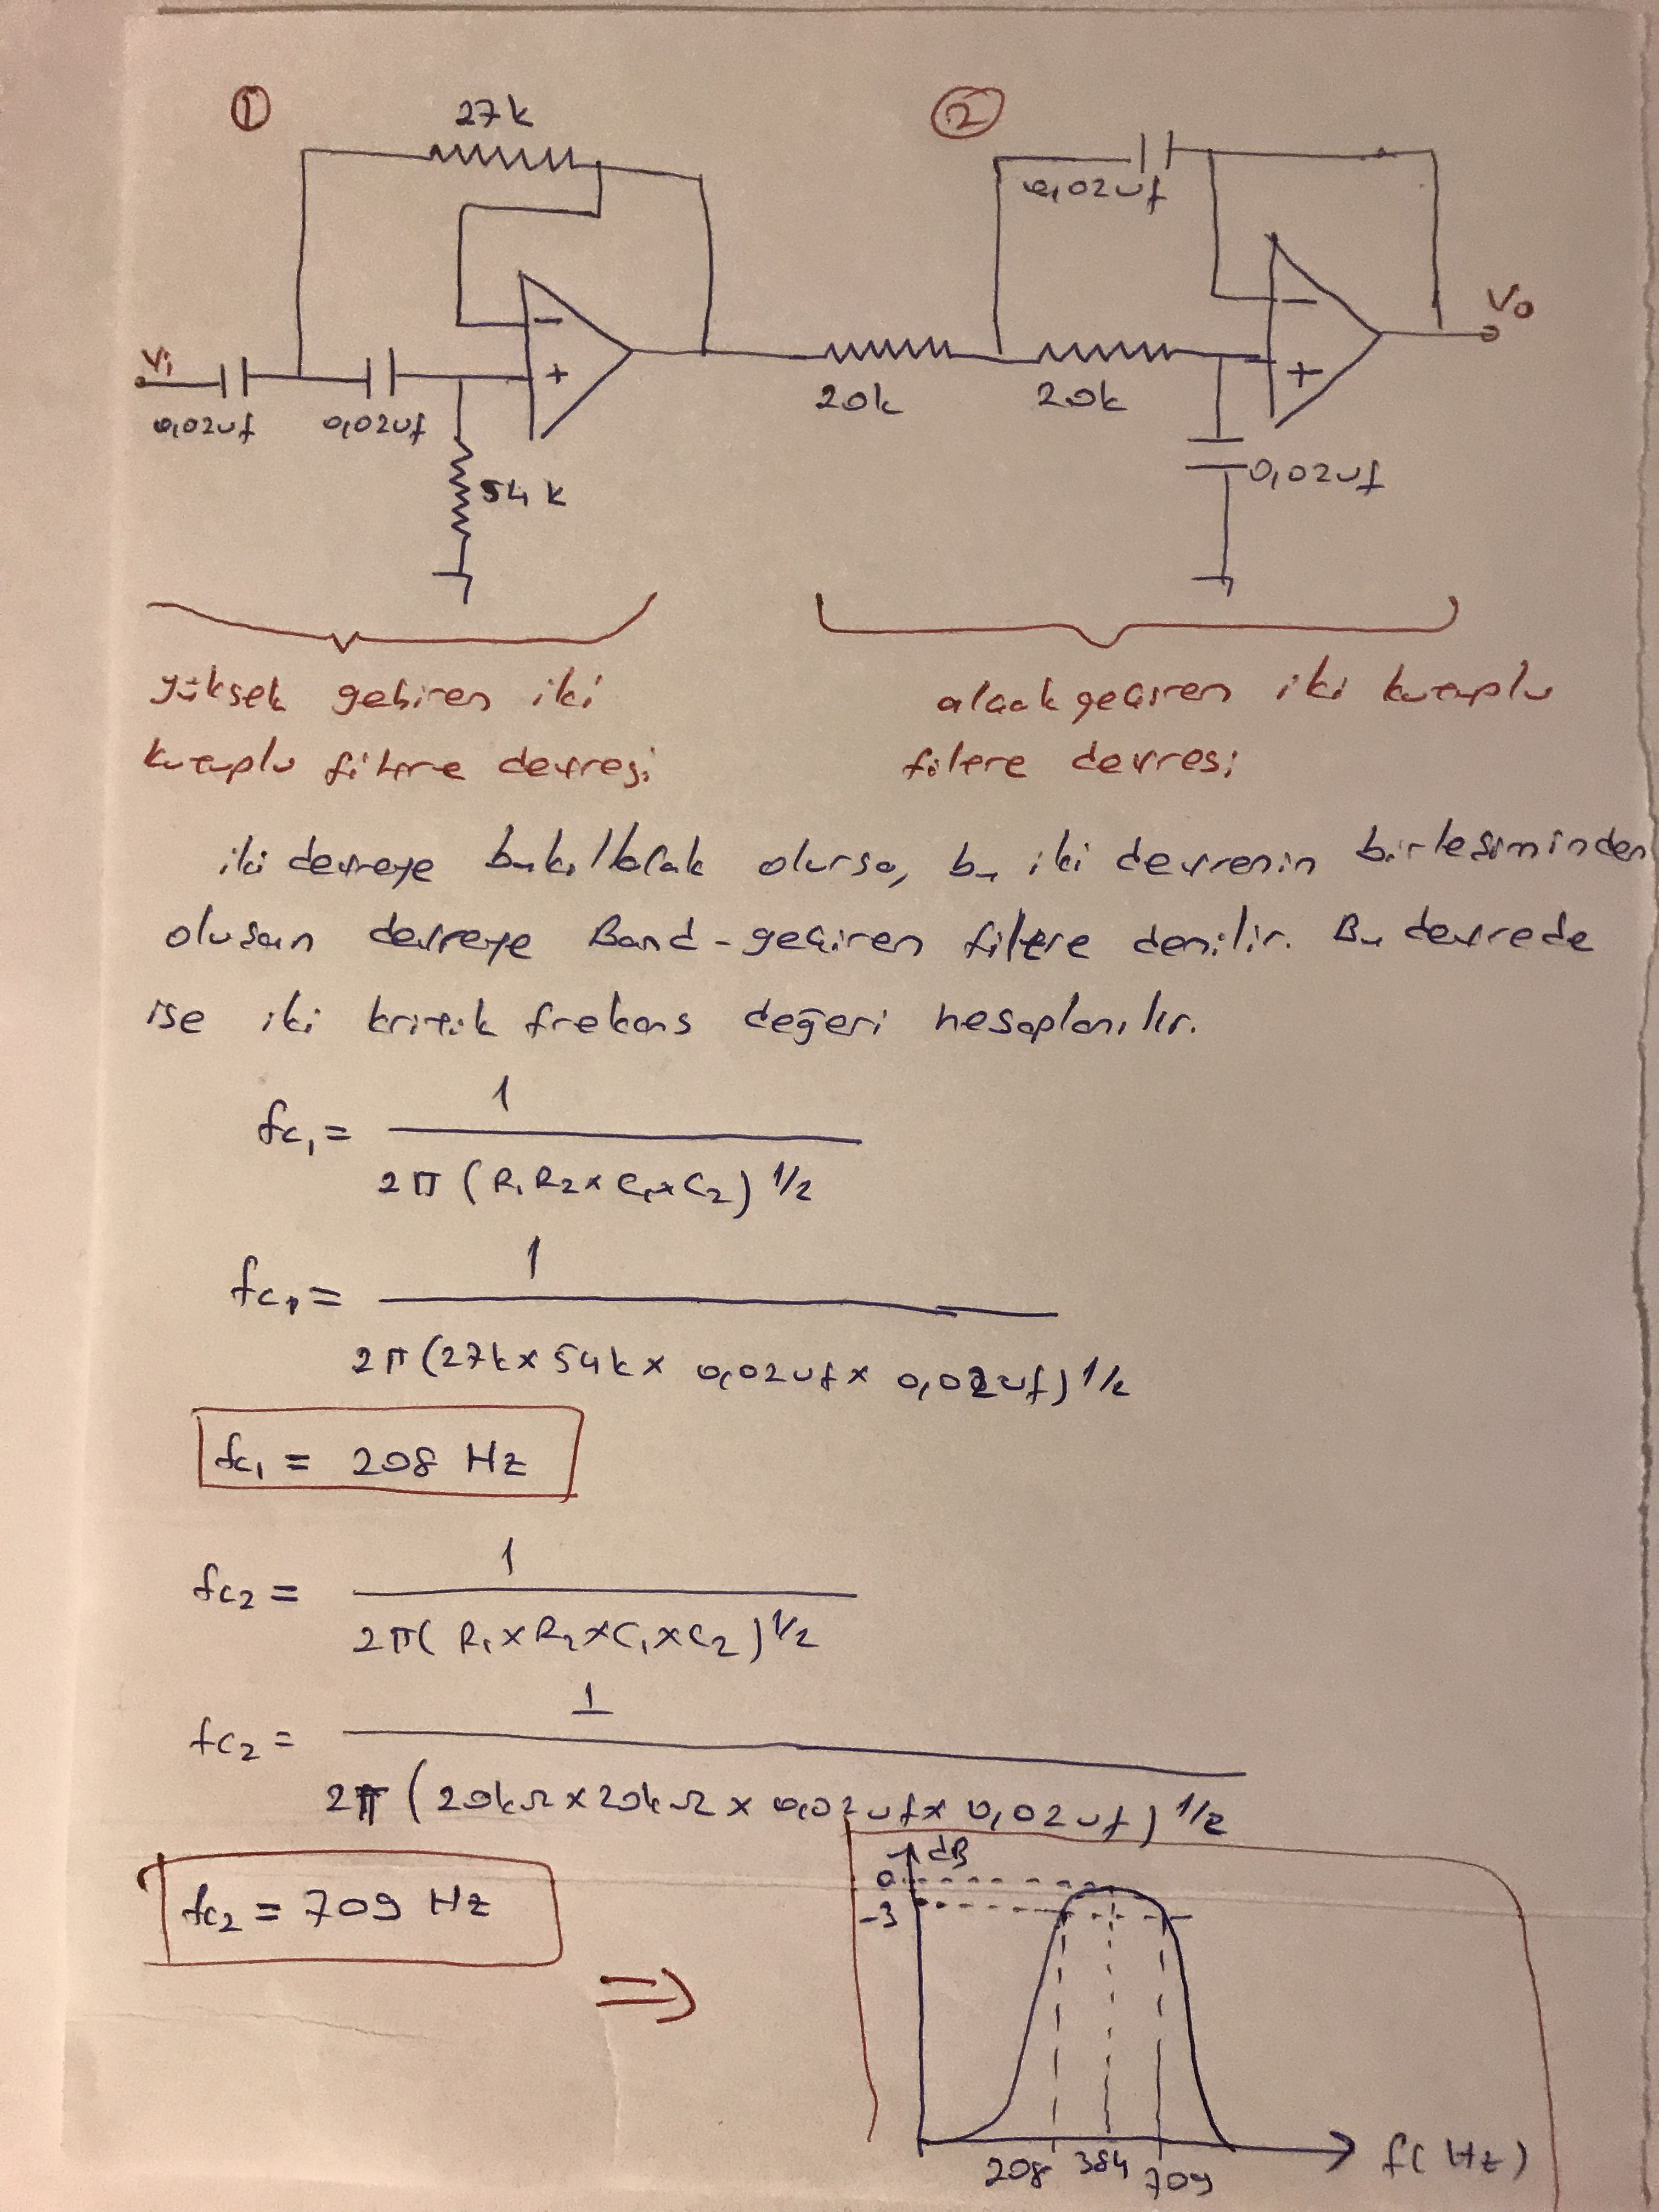 ① ②
27k
0,02uf
Vo
Vi
0,02uf 0,02uf
20k 20k
54 k
0,02uf
yüksek geçiren iki
kutuplu filtre devresi
alçak geçiren iki kutuplu
filtere devresi
iki devreye bakılacak olursa, bu iki devrenin birleşiminden
oluşan devreye Band-geçiren filtre denilir. Bu devrede
ise iki kritik frekans değeri hesaplanılır.
fc₁ = 1 / 2π (R₁R₂ x C₁ x C₂) 1/2
fc₁ = 1 / 2π (27k x 54k x 0,02uf x 0,02uf) 1/2
fc₁ = 208 Hz
fc₂ = 1 / 2π( R₁ x R₂ x C₁ x C₂ ) 1/2
fc₂ = 1 / 2π (20kΩ x 20kΩ x 0,02uf x 0,02uf) 1/2
fc₂ = 709 Hz
⇒
dB
0
-3
208 384 709
f( Hz)